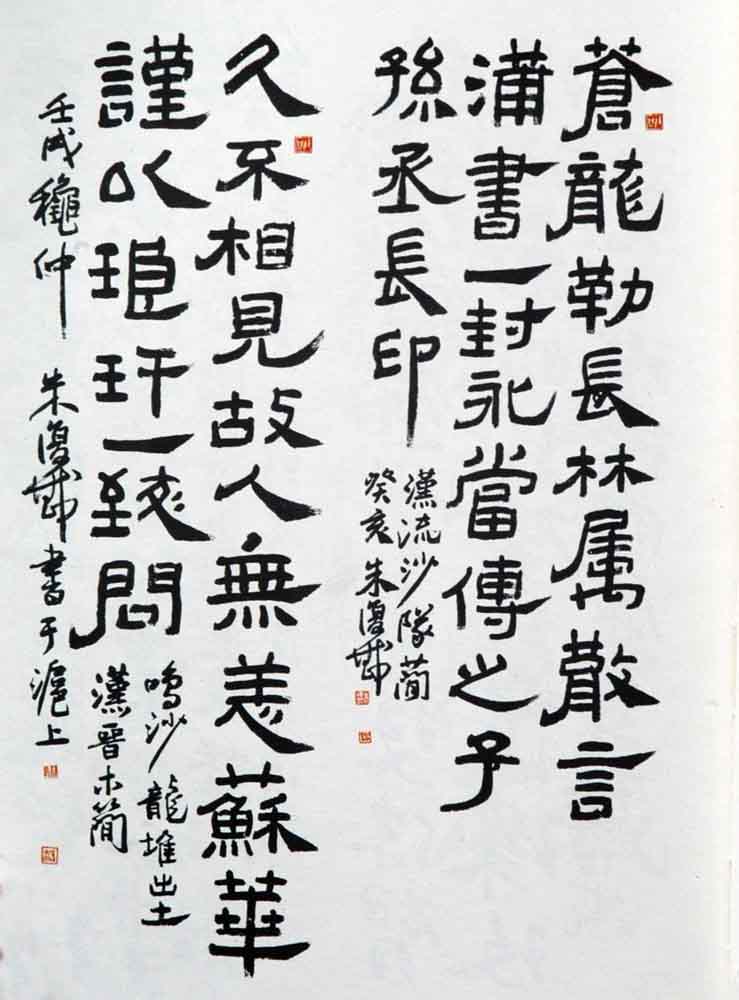 蒼龍勒長林属散言
蒲書一封永當傳之子
孫丞長印
漢流沙隊簡
癸亥朱復戡
久不相見故人無恙蘇華
謹以琅玕一致問
鳴沙龍堆出土
漢晉木簡
壬戌龝仲 朱復戡書于滬上